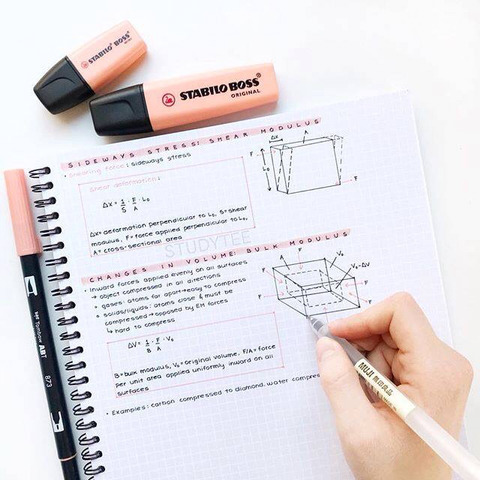 STABILO BOSS
STABILO BOSS
ORIGINAL
SIDEWAYS STRESS: SHEAR MODULUS
• shearing force: sideways stress
Shear deformation:
Δx = 1/S · F/A · L₀
Δx = deformation perpendicular to L₀, S = shear
modulus, F = force applied perpendicular to L₀,
A = cross-sectional area
Δx
A
F
L₀
F
STUDYTEE
CHANGES IN VOLUME: BULK MODULUS
• inward forces applied evenly on all surfaces
→ object compressed in all directions
• gases: atoms far apart → easy to compress
• solids/liquids: atoms close & must be
compressed → opposed by EM forces
↳ hard to compress
ΔV = 1/B · F/A · V₀
B = bulk modulus, V₀ = original volume, F/A = force
per unit area applied uniformly inward on all
surfaces
F
A
F
V₀
V₀-ΔV
F
F
F
• Examples: carbon compressed to diamond, water compres
873
ABT
MUJI 無印良品